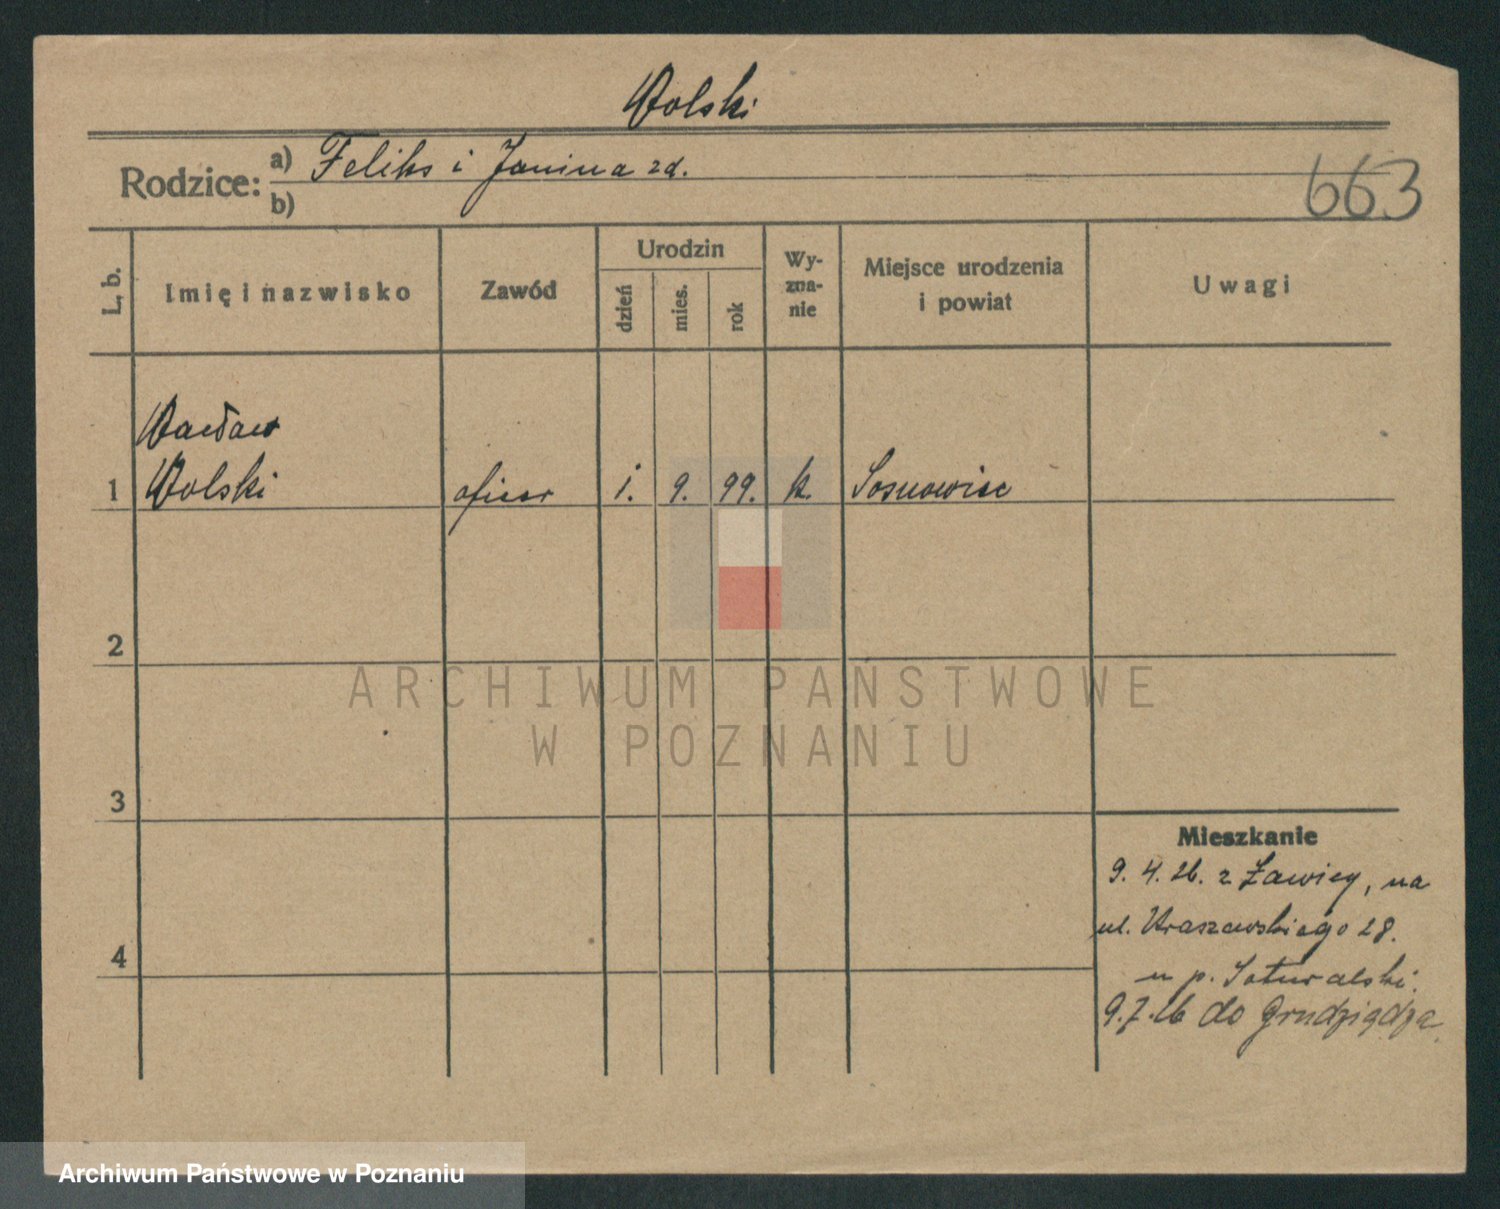 Wolski
Rodzice: a) Feliks i Janina zd.
b)
663
L. b.
Imię i nazwisko
Zawód
Urodzin
dzień
mies.
rok
Wy-
zna-
nie
Miejsce urodzenia
i powiat
Uwagi
Wacław
1 Wolski oficer 1. 9. 99. k. Sosnowiec
2
ARCHIWUM PAŃSTWOWE
W POZNANIU
3
Mieszkanie
9. 4. 26. z Ławicy, na
ul. Kraszewskiego 28.
4
u p.
9.7.26 do Grudziądza.
Archiwum Państwowe w Poznaniu